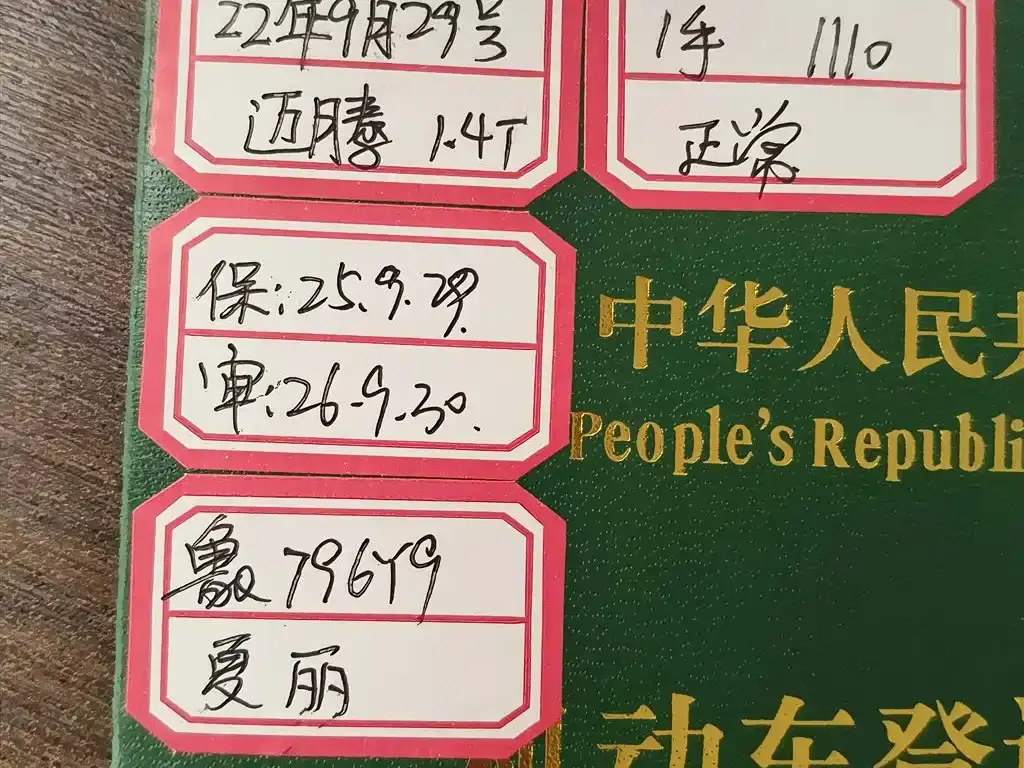 22年9月29号
迈腾 1.4T
1手 1110
正常
保:25.9.29.
审:26.9.30.
鲁Q 796Y9
夏丽
中华人民共
People's Republi
动车登